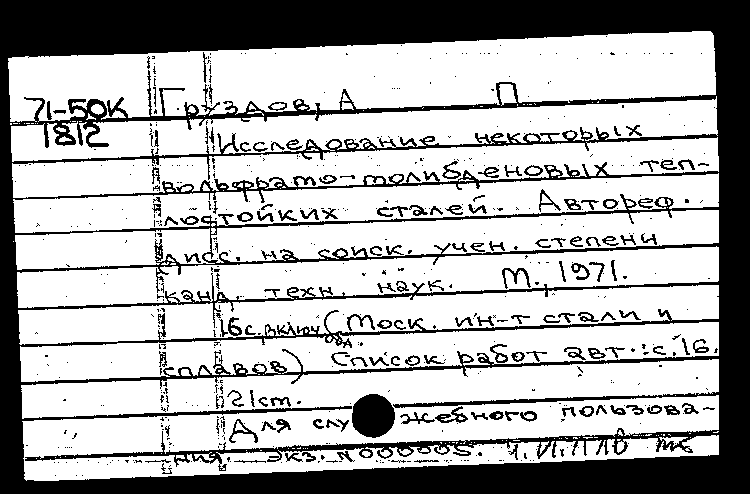 71-50К Груздов, А П
1812
Исследование некоторых
вольфрамо-молибденовых теп-
лостойких сталей. Автореф.
дисс. на соиск. учен. степени
канд. техн. наук. М., 1971.
16 с. включ. обл. (Моск. ин-т стали и
сплавов) Список работ авт.: с. 16.
21 cm.
Для служебного пользова-
ния. Экз. N 000005.